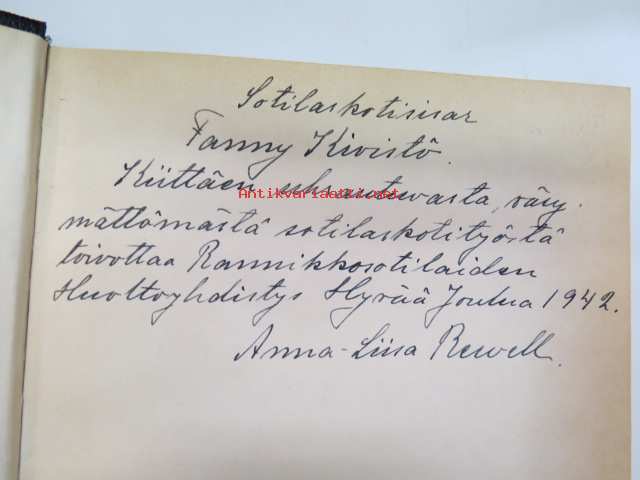 Sotilaskotisisar
Fanny Kivistö.
Kiittäen uhrautuvasta, väsy-
mättömästä sotilaskotityöstä
toivottaa Rannikkosotilaiden
Huoltoyhdistys Hyvää Joulua 1942.
Anna-Liisa Rewell.
Antikvariaatti.net